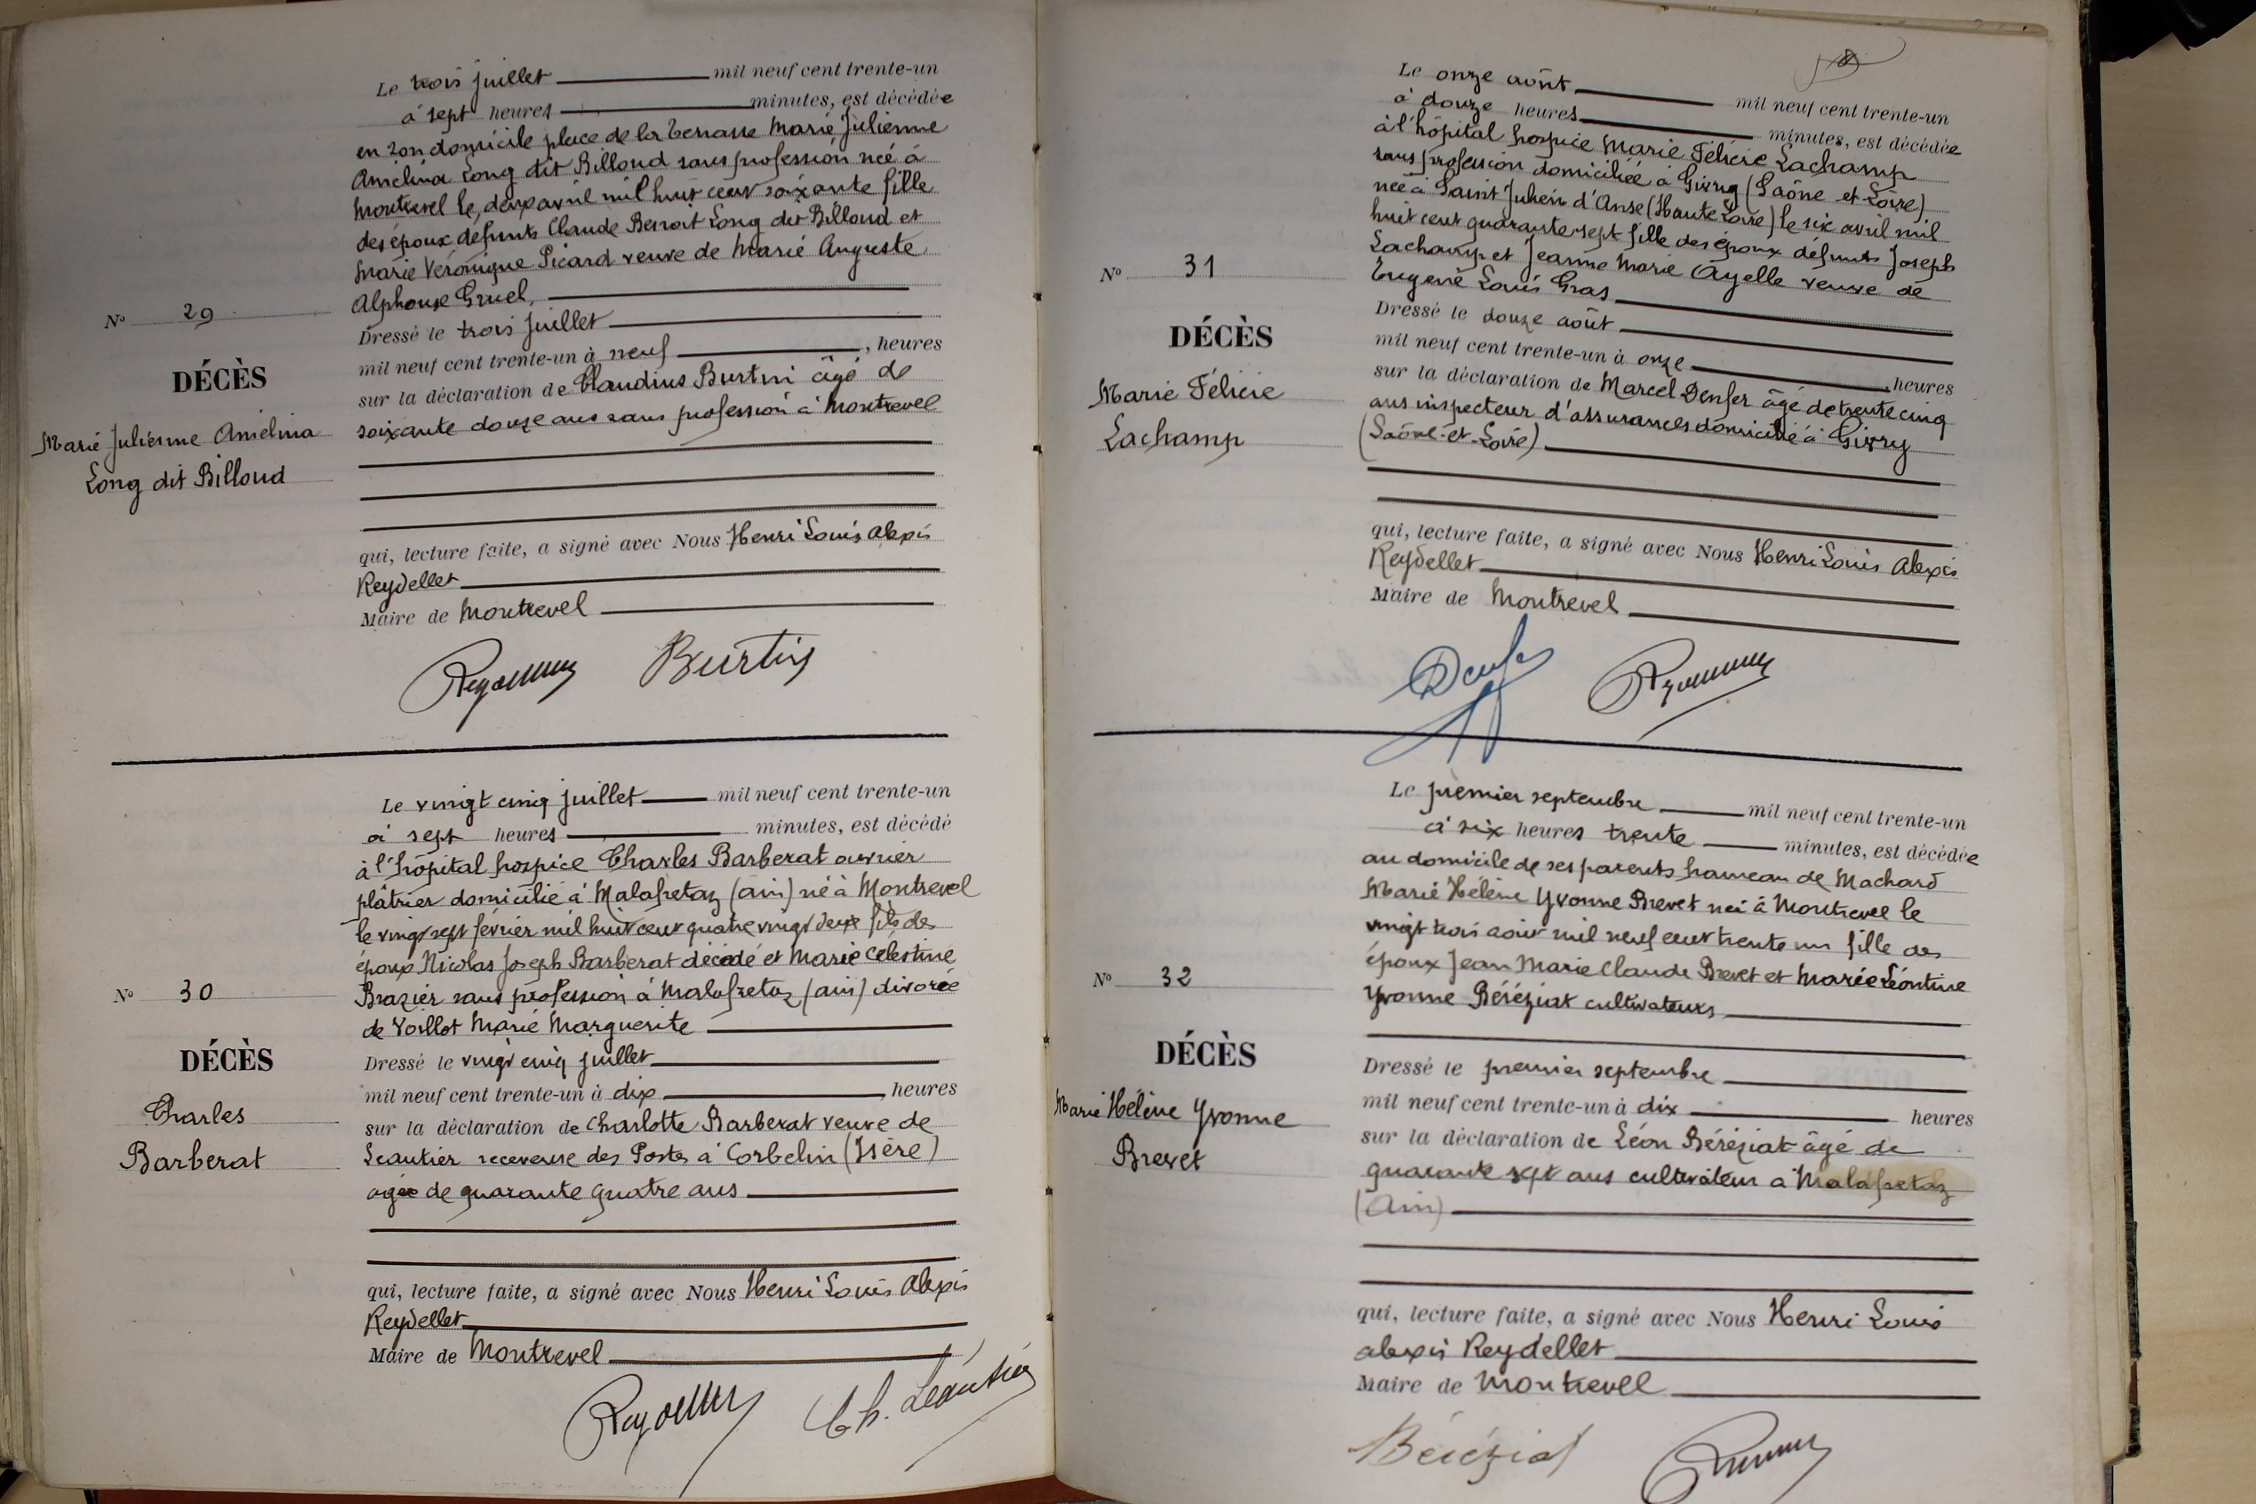 Le trois juillet mil neuf cent trente-un
à sept heures minutes, est décédée
en son domicile place de la terrasse Marie Julienne
Amélina Long dit Billoud sans profession née à
Montrevel le, deux avril mil huit cent soixante fille
des époux défunts Claude Benoit Long dit Billoud et
Marie Véronique Picard veuve de Marie Auguste
Alphonse Gruel,
N° 29
DÉCÈS
Marie Julienne Amélina
Long dit Billoud
Dressé le trois juillet
mil neuf cent trente-un à neuf , heures
sur la déclaration de Claudius Burtin âgé de
soixante douze ans sans profession à Montrevel
qui, lecture faite, a signé avec Nous Henri Louis Alexis
Reydellet
Maire de Montrevel
Burtin
Le vingt cinq juillet mil neuf cent trente-un
à sept heures minutes, est décédé
à l'hôpital hospice Charles Barberat ouvrier
plâtrier domicilié à Malafretaz (Ain) né à Montrevel
le vingt sept février mil huit cent quatre vingt deux fils des
époux Nicolas Joseph Barberat décédé et Marie Célestine
Brazier sans profession à Malafretaz (Ain) divorcé
de Voillot Marie Marguerite
N° 30
DÉCÈS
Charles
Barberat
Dressé le vingt cinq juillet
mil neuf cent trente-un à dix heures
sur la déclaration de Charlotte Barberat veuve de
Leautier receveuse des Postes à Corbelin (Isère)
agée de quarante quatre ans
qui, lecture faite, a signé avec Nous Henri Louis Alexis
Reydellet
Maire de Montrevel
Ch. Léautier
Le onze août mil neuf cent trente-un
à douze heures minutes, est décédée
à l'hôpital hospice Marie Félicie Lachamp
sans profession domiciliée à Givry (Saône-et-Loire)
née à Saint Julien d'Anse (Haute Loire) le six avril mil
huit cent quarante sept fille des époux défunts Joseph
Lachamp et Jeanne Marie Ayelle veuve de
Eugène Louis Gras
N° 31
DÉCÈS
Marie Félicie
Lachamp
Dressé le douze août
mil neuf cent trente-un à onze heures
sur la déclaration de Marcel Denfer âgé de trente cinq
ans inspecteur d'assurances domicilié à Givry
(Saône-et-Loire)
qui, lecture faite, a signé avec Nous Henri Louis Alexis
Reydellet
Maire de Montrevel
Denfer
Le premier septembre mil neuf cent trente-un
à six heures trente minutes, est décédée
au domicile de ses parents hameau de Machard
Marie Hélène Yvonne Brevet née à Montrevel le
vingt trois août mil neuf cent trente un fille des
époux Jean Marie Claude Brevet et Marie Léontine
Yvonne Béréziat cultivateurs
N° 32
DÉCÈS
Marie Hélène Yvonne
Brevet
Dressé le premier septembre
mil neuf cent trente-un à dix heures
sur la déclaration de Léon Béréziat âgé de
quarante sept ans cultivateur à Malafretaz
(Ain)
qui, lecture faite, a signé avec Nous Henri Louis
Alexis Reydellet
Maire de Montrevel
Béréziat